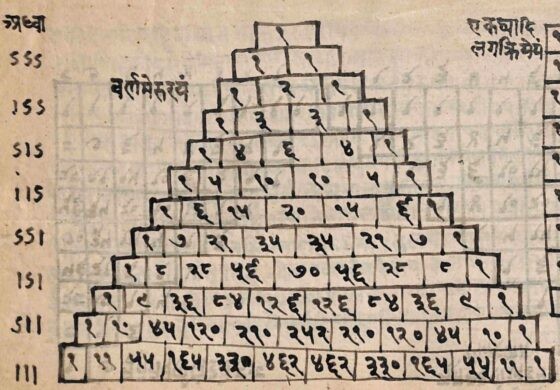 अध्वा
ऽऽऽ
।ऽऽ
ऽ।ऽ
।।ऽ
ऽऽ।
।ऽ।
ऽ।।
।।।
वर्णमेरुरयं
एकद्व्यादि
लगक्रियेयं
१
१ १
१ २ १
१ ३ ३ १
१ ४ ६ ४ १
१ ५ १० १० ५ १
१ ६ १५ २० १५ ६ १
१ ७ २१ ३५ ३५ २१ ७ १
१ ८ २८ ५६ ७० ५६ २८ ८ १
१ ९ ३६ ८४ १२६ १२६ ८४ ३६ ९ १
१ १० ४५ १२० २१० २५२ २१० १२० ४५ १० १
१ ११ ५५ १६५ ३३० ४६२ ४६२ ३३० १६५ ५५ ११ १